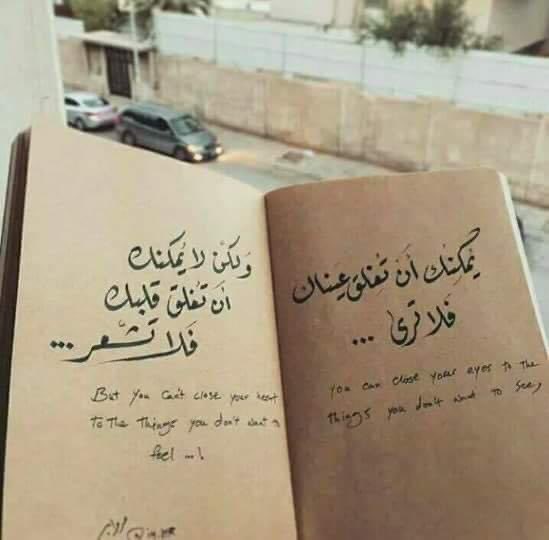 يُمكنك أن تغلق عينان
فلا ترى ...
you can close your eyes to the
things you don't want to see,
ولكن لا يُمكنك
أن تغلق قلبك
فلا تشعر ...
But you can't close your heart
to the things you don't want to
feel ...!